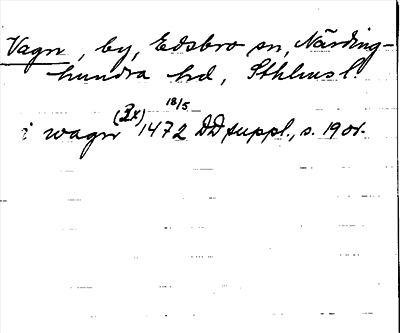 Vagn, by, Edsbro sn, Närding-
hundra hd, Sthlms l.
i wagn (2x) 1472 18/5 DD suppl., s. 190.